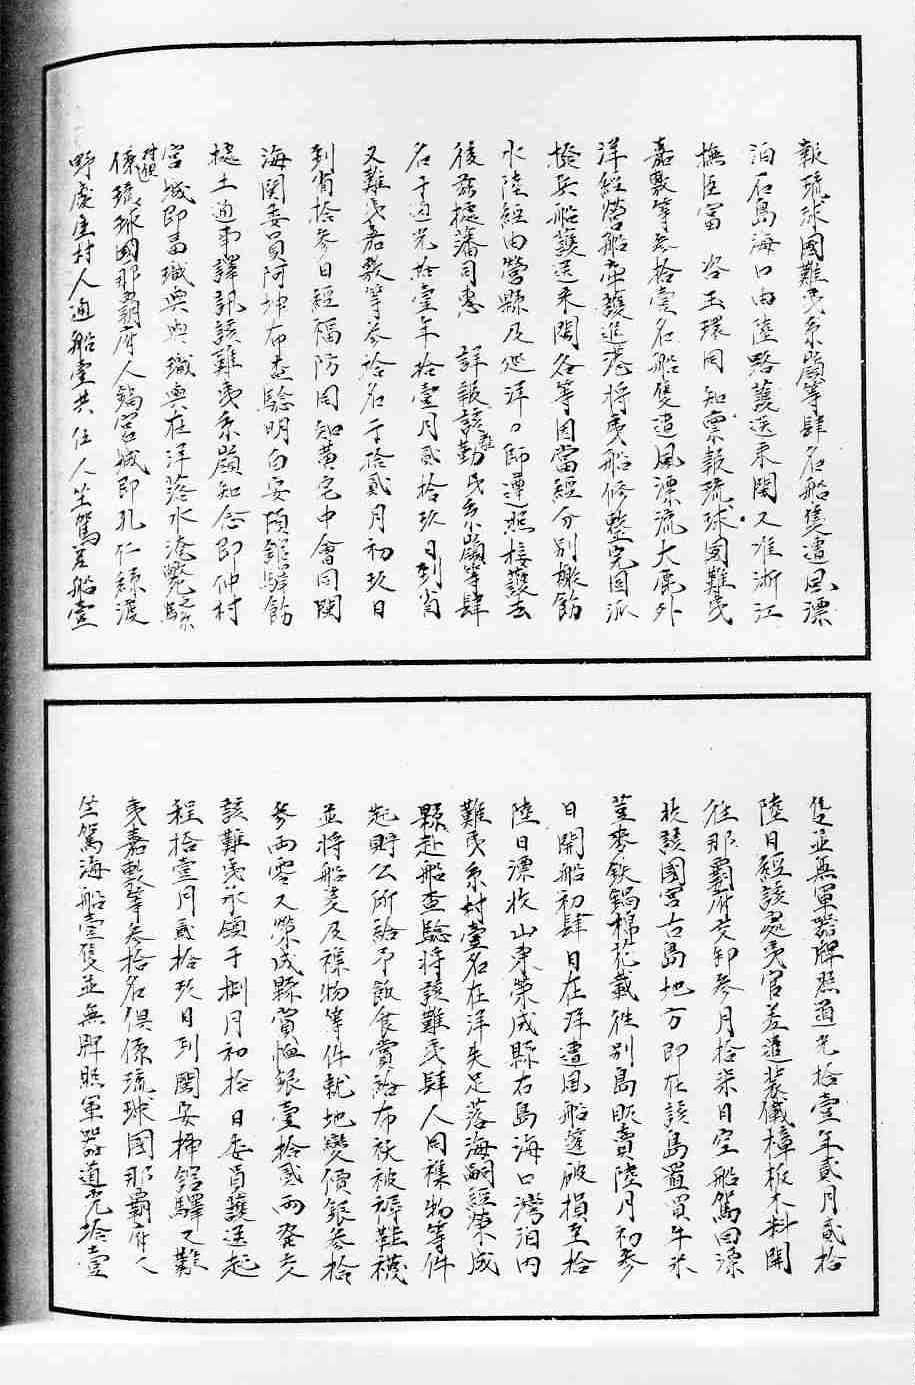 報琉球國難夷系嶺等肆名船隻遭風漂
泊石島海口由陸路護送來閩又准浙江
撫臣富　咨玉環同知稟報琉球國難夷
嘉數等參拾壹名船隻遭風漂流大鹿外
洋經營船牽護進港將夷船修整完固派
撥兵船護送來閩各等因當經分別檄飭
水陸經由營縣及巡洋口即速照接護去
後茲據藩司惠　詳報該難夷系嶺等肆
名于道光拾壹年拾壹月貳拾玖日到省
又難夷嘉數等參拾名于拾貳月初玖日
到省拾參日經福防同知黃宅中會同閩
海關委員阿坤布查驗明白安頓館驛飭
據土通事譯訊該難夷系嶺知念即仲村
宮城即畐職與與職與在洋落水淹斃之系
村俱
係琉球國那霸府人鍋宮城即孔仁稱渡
野處庄村人通船壹共伍人坐駕差船壹
隻並無軍器牌照道光拾壹年貳月貳拾
陸日經該處夷官差遣裝儀樟板木料開
往那霸府交卸參月拾柒日空船駕回漂
收該國宮古島地方即在該島置買牛米
荳麥鉄鍋棉花載往別島販賣陸月初參
日開船初肆日在洋遭風船篷破損至拾
陸日漂收山東榮成縣石島海口灣泊內
難夷系村壹名在洋失足落海嗣經榮成
縣赴船查驗將該難夷肆人同襍物等件
起貯公所給予飯食賞給布袄被褥鞋襪
並將船隻及襍物等件就地變價銀參拾
參兩零又榮成縣賞恤銀壹拾貳兩發交
該難夷承領于捌月初拾日委員護送起
程拾壹月貳拾玖日到閩安插館驛又難
夷嘉數等參拾名俱係琉球國那霸府人
坐駕海船壹隻並無牌照軍器道光拾壹